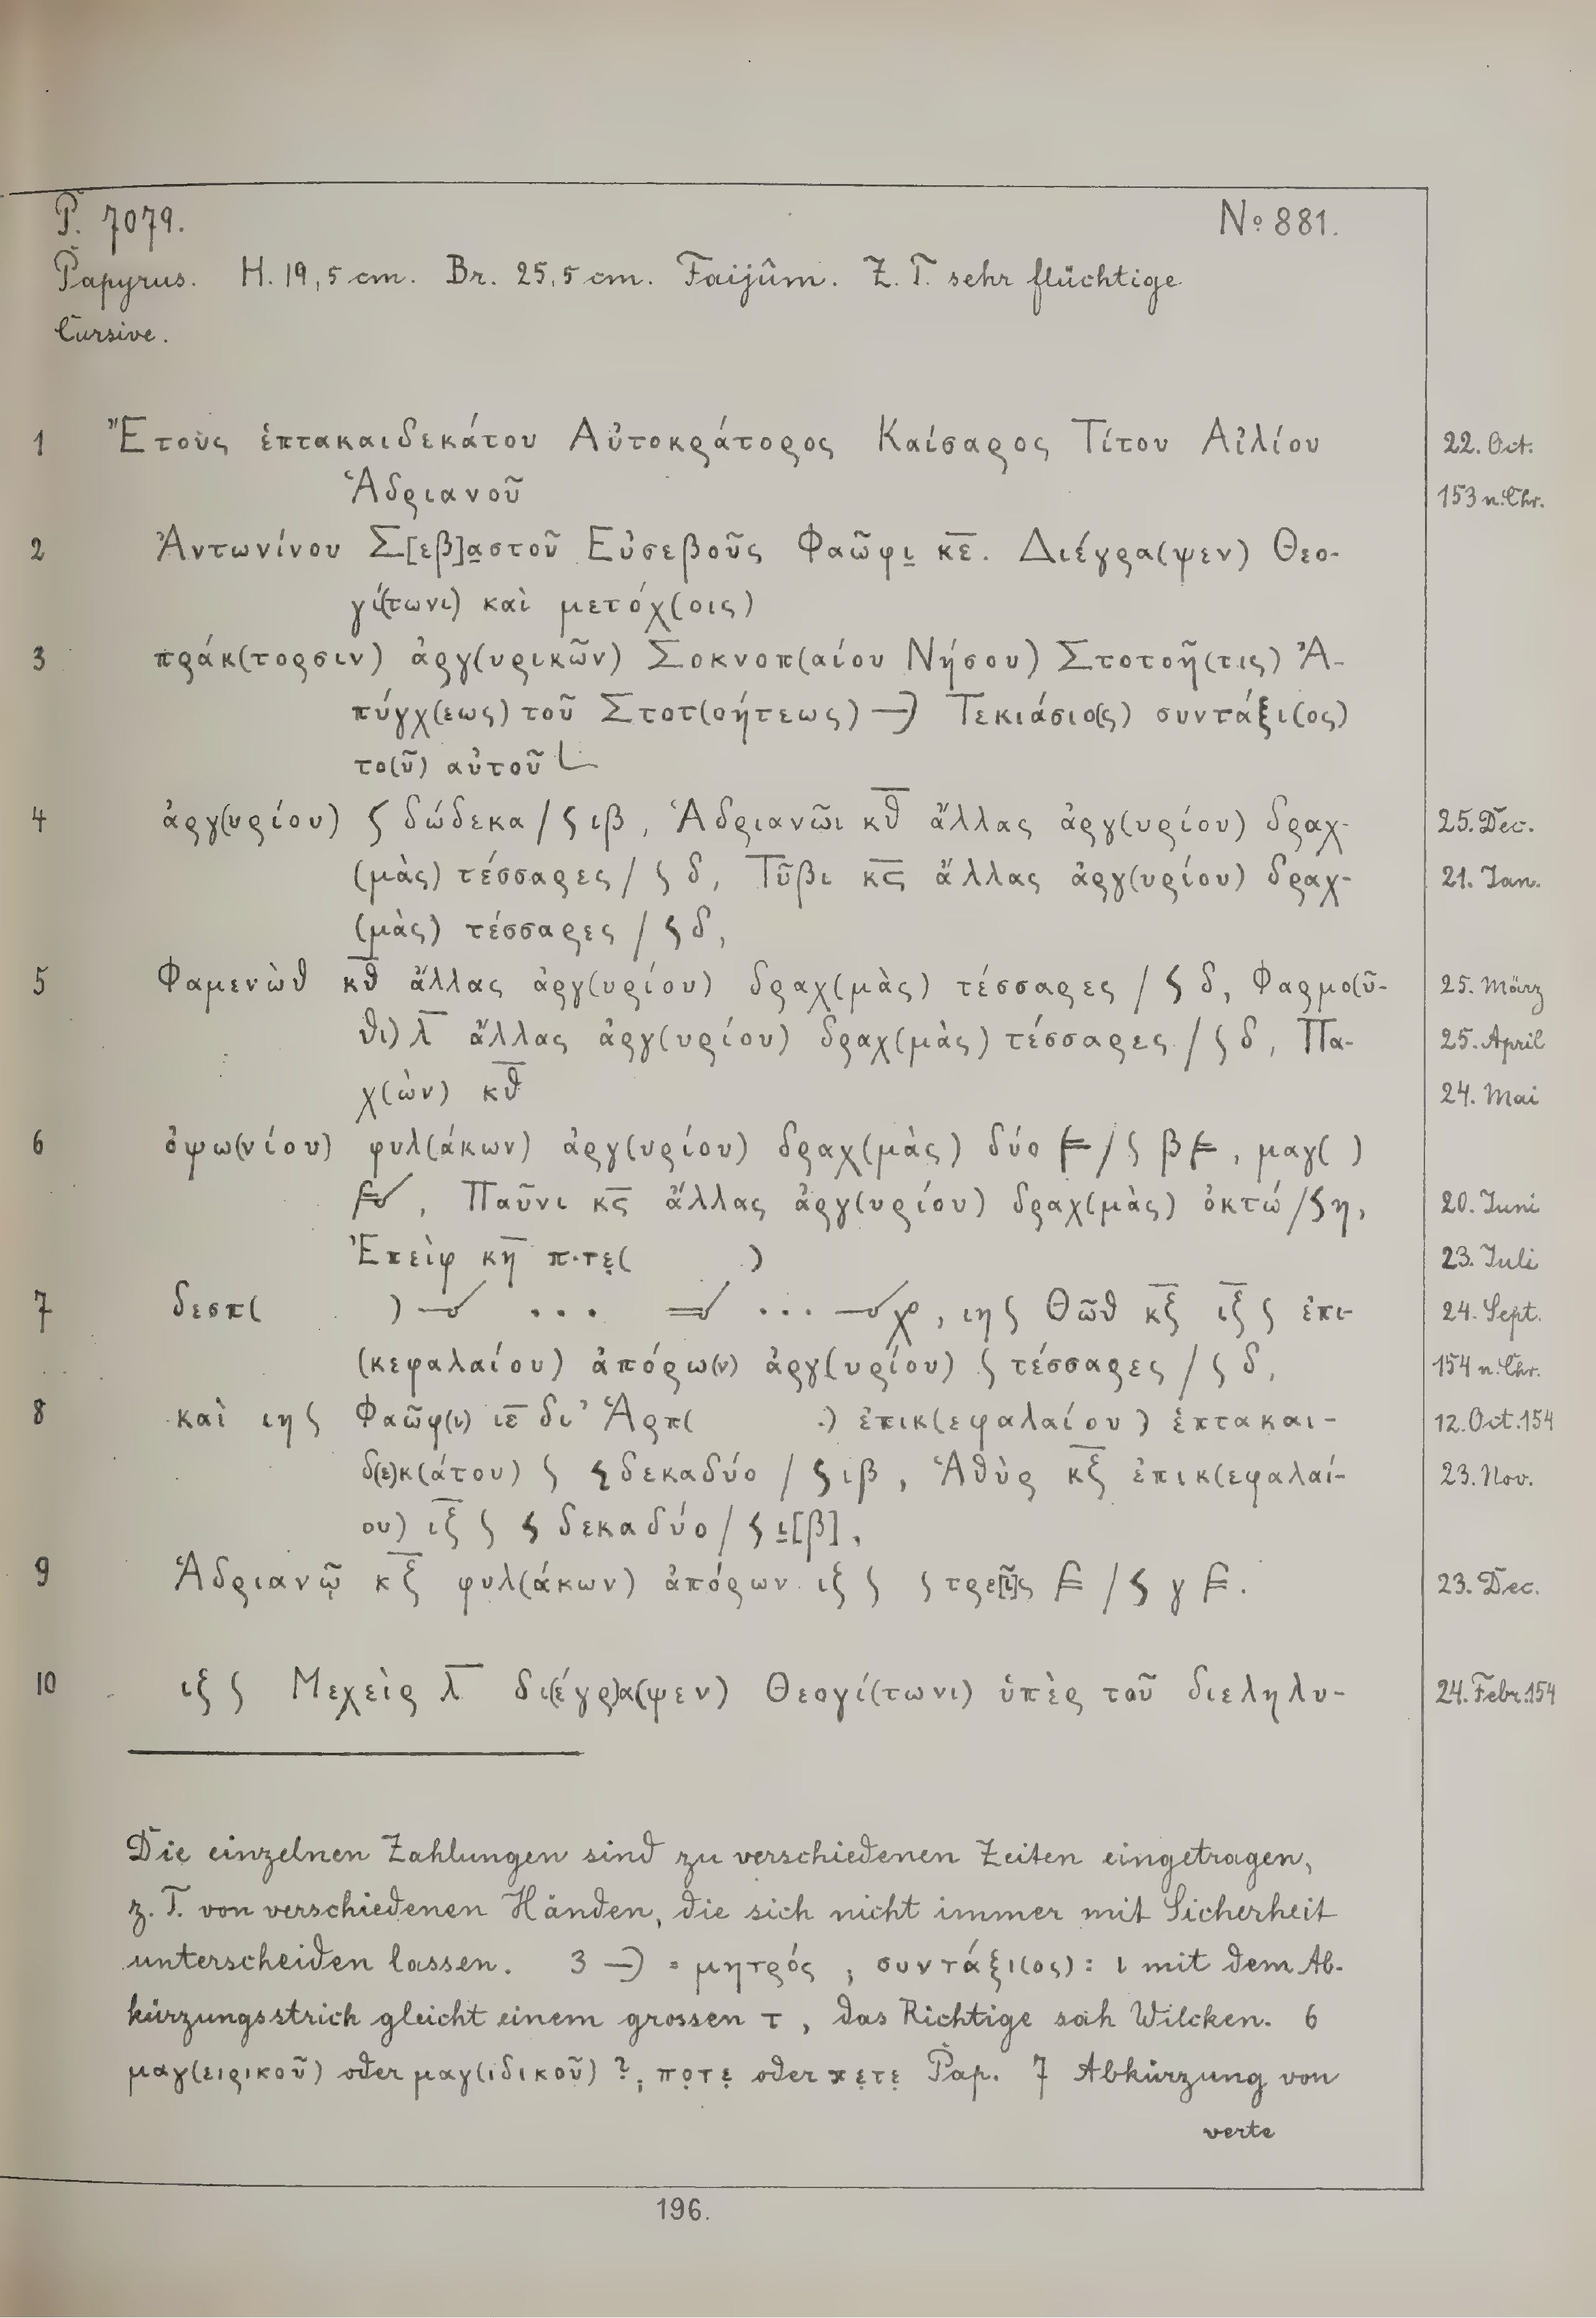 P. 7079. № 881.
Papyrus. H. 19,5 cm. Br. 25,5 cm. Faijûm. Z. T. sehr flüchtige
Cursive.
1 Ἔτους ἑπτακαιδεκάτου Αὐτοκράτορος Καίσαρος Τίτου Αἰλίου 22. Oct.
Ἁδριανοῦ 153 n. Chr.
2 Ἀντωνίνου Σ[εβ]α̣στοῦ Εὐσεβοῦς Φαῶφι̣ κ̅ε̅. Διέγρα(ψεν) Θεο-
γί(τωνι) καὶ μετόχ(οις)
3 πράκ(τορσιν) ἀργ(υρικῶν) Σοκνοπ(αίου Νήσου) Στοτοῆ(τις) Ἀ-
πύγχ(εως) τοῦ Στοτ(οήτεως) —) Τεκιάσιο(ς) συντάξι(ος)
το(ῦ) αὐτοῦ
4 ἀργ(υρίου) ʃ δώδεκα / ʃ ιβ, Ἁδριανῶι κ̅θ̅ ἄλλας ἀργ(υρίου) δραχ- 25. Dec.
(μὰς) τέσσαρες / ʃ δ, Τῦβι κ̅ϛ̅ ἄλλας ἀργ(υρίου) δραχ- 21. Jan.
(μὰς) τέσσαρες / ʃ δ,
5 Φαμενὼθ κ̅θ̅ ἄλλας ἀργ(υρίου) δραχ(μὰς) τέσσαρες / ʃ δ, Φαρμο(ῦ- 25. März
θι) λ̅ ἄλλας ἀργ(υρίου) δραχ(μὰς) τέσσαρες / ʃ δ, Πα- 25. April
χ(ὼν) κ̅θ̅ 24. Mai
6 ὀψω(νίου) φυλ(άκων) ἀργ(υρίου) δραχ(μὰς) δύο / ʃ β, μαγ( )
, Παῦνι κ̅ϛ̅ ἄλλας ἀργ(υρίου) δραχ(μὰς) ὀκτώ / ʃ η, 20. Juni
Ἐπεὶφ κ̅η̅ π·τε̣( ) 23. Juli
7 δεσπ( ) ... ... , ιη ʃ Θῶθ κ̅ξ̅ ι̅ξ̅ ʃ ἐπι- 24. Sept.
(κεφαλαίου) ἀπόρω(ν) ἀργ(υρίου) ʃ τέσσαρες / ʃ δ, 154 n. Chr.
8 καὶ ιη ʃ Φαῶφ(ι) ι̅ε̅ δι' Ἁρπ( ·) ἐπικ(εφαλαίου) ἑπτακαι- 12. Oct. 154
δ(ε)κ(άτου) ʃ ʃ δεκαδύο / ʃ ιβ, Ἁθὺρ κ̅ξ̅ ἐπικ(εφαλαί- 23. Nov.
ου) ι̅ξ̅ ʃ ʃ δεκαδύο / ʃ ι̣[β],
9 Ἁδριανῷ κ̅ξ̅ φυλ(άκων) ἀπόρων ιξ ʃ ʃ τρε[ῖ]ς / ʃ γ. 23. Dec.
10 ιξ ʃ Μεχεὶρ λ̅ δι(έγρ)α(ψεν) Θεογί(τωνι) ὑπὲρ τοῦ διεληλυ- 24. Febr. 154
Die einzelnen Zahlungen sind zu verschiedenen Zeiten eingetragen,
z. T. von verschiedenen Händen, die sich nicht immer mit Sicherheit
unterscheiden lassen. 3 —) = μητρός ; συντάξι(ος): ι mit dem Ab-
kürzungsstrich gleicht einem grossen τ, das Richtige sah Wilcken. 6
μαγ(ειρικοῦ) oder μαγ(ιδικοῦ) ?; πο̣τε̣ oder πε̣τε̣ Pap. 7 Abkürzung von
verte
196.